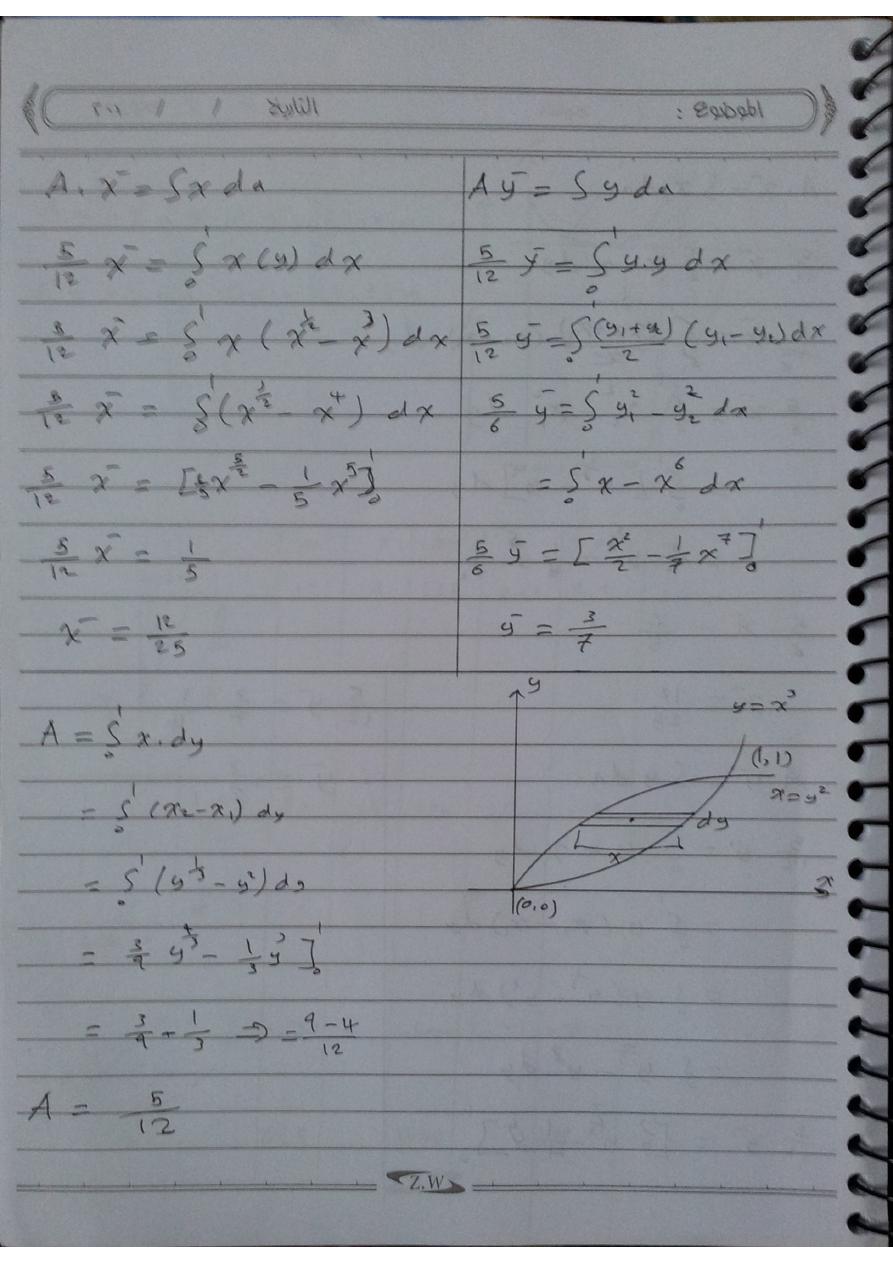 الموضوع :
التاريخ / / ٢٠١
A. x̄ = ∫ x da
5/12 x̄ = ∫₀¹ x (y) dx
5/12 x̄ = ∫₀¹ x (x^(1/2) - x^3) dx
5/12 x̄ = ∫₀¹ (x^(3/2) - x^4) dx
5/12 x̄ = [2/5 x^(5/2) - 1/5 x^5]₀¹
5/12 x̄ = 1/5
x̄ = 12/25
A ȳ = ∫ y da
5/12 ȳ = ∫₀¹ y.y dx
5/12 ȳ = ∫₀¹ (y₁+y₂)/2 (y₁-y₂) dx
5/6 ȳ = ∫₀¹ y₁² - y₂² dx
= ∫₀¹ x - x^6 dx
5/6 ȳ = [x²/2 - 1/7 x^7]₀¹
ȳ = 3/7
A = ∫₀¹ x.dy
= ∫₀¹ (x₂-x₁) dy
= ∫₀¹ (y^(1/3) - y²) dy
= 3/4 y^(4/3) - 1/3 y³]₀¹
= 3/4 - 1/3 ⇒ = (9-4)/12
A = 5/12
y
y = x³
(1,1)
x = y²
dy
x
x
(0,0)
Z.W